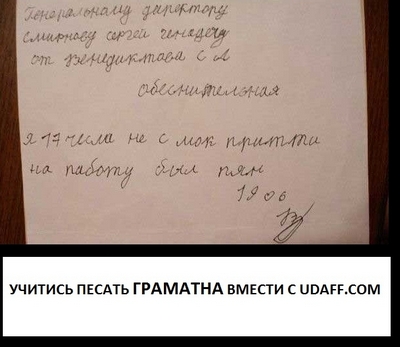 Генеральному директору
Смирнову сергей генадечу
от Венедиктова С А
обеснительная
Я 17 числа не с мок притти
на работу был пян
19 06
УЧИТИСЬ ПЕСАТЬ ГРАМАТНА ВМЕСТИ С UDAFF.COM